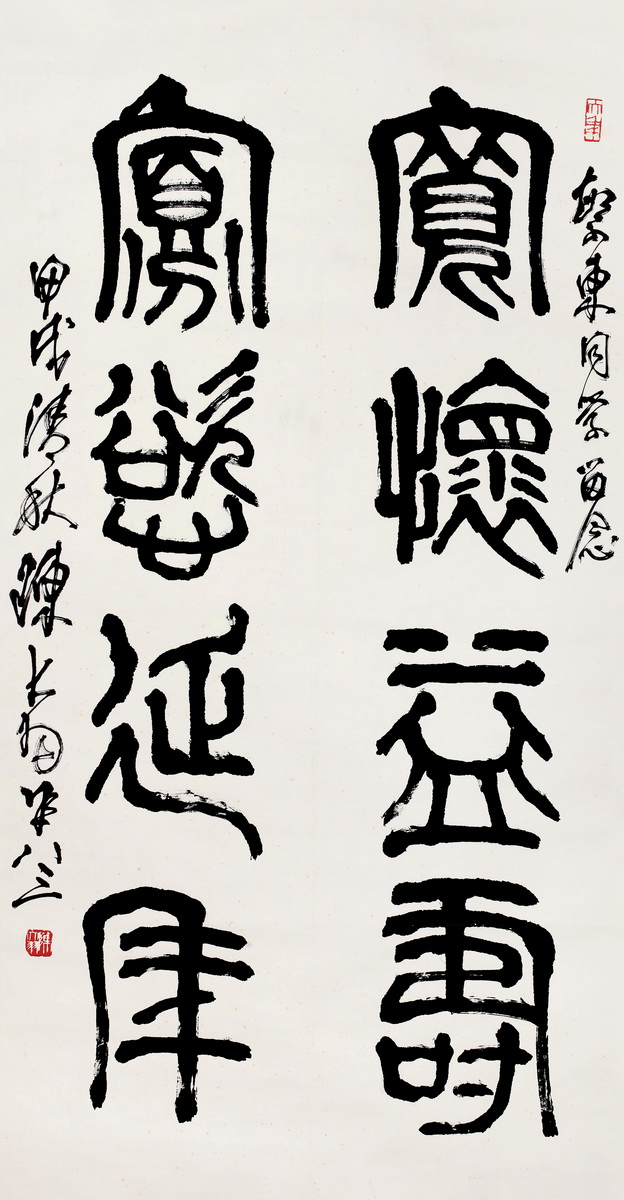 東同學留念
寬懷益壽
寡慾延年
甲戌清秋陳大羽年八三